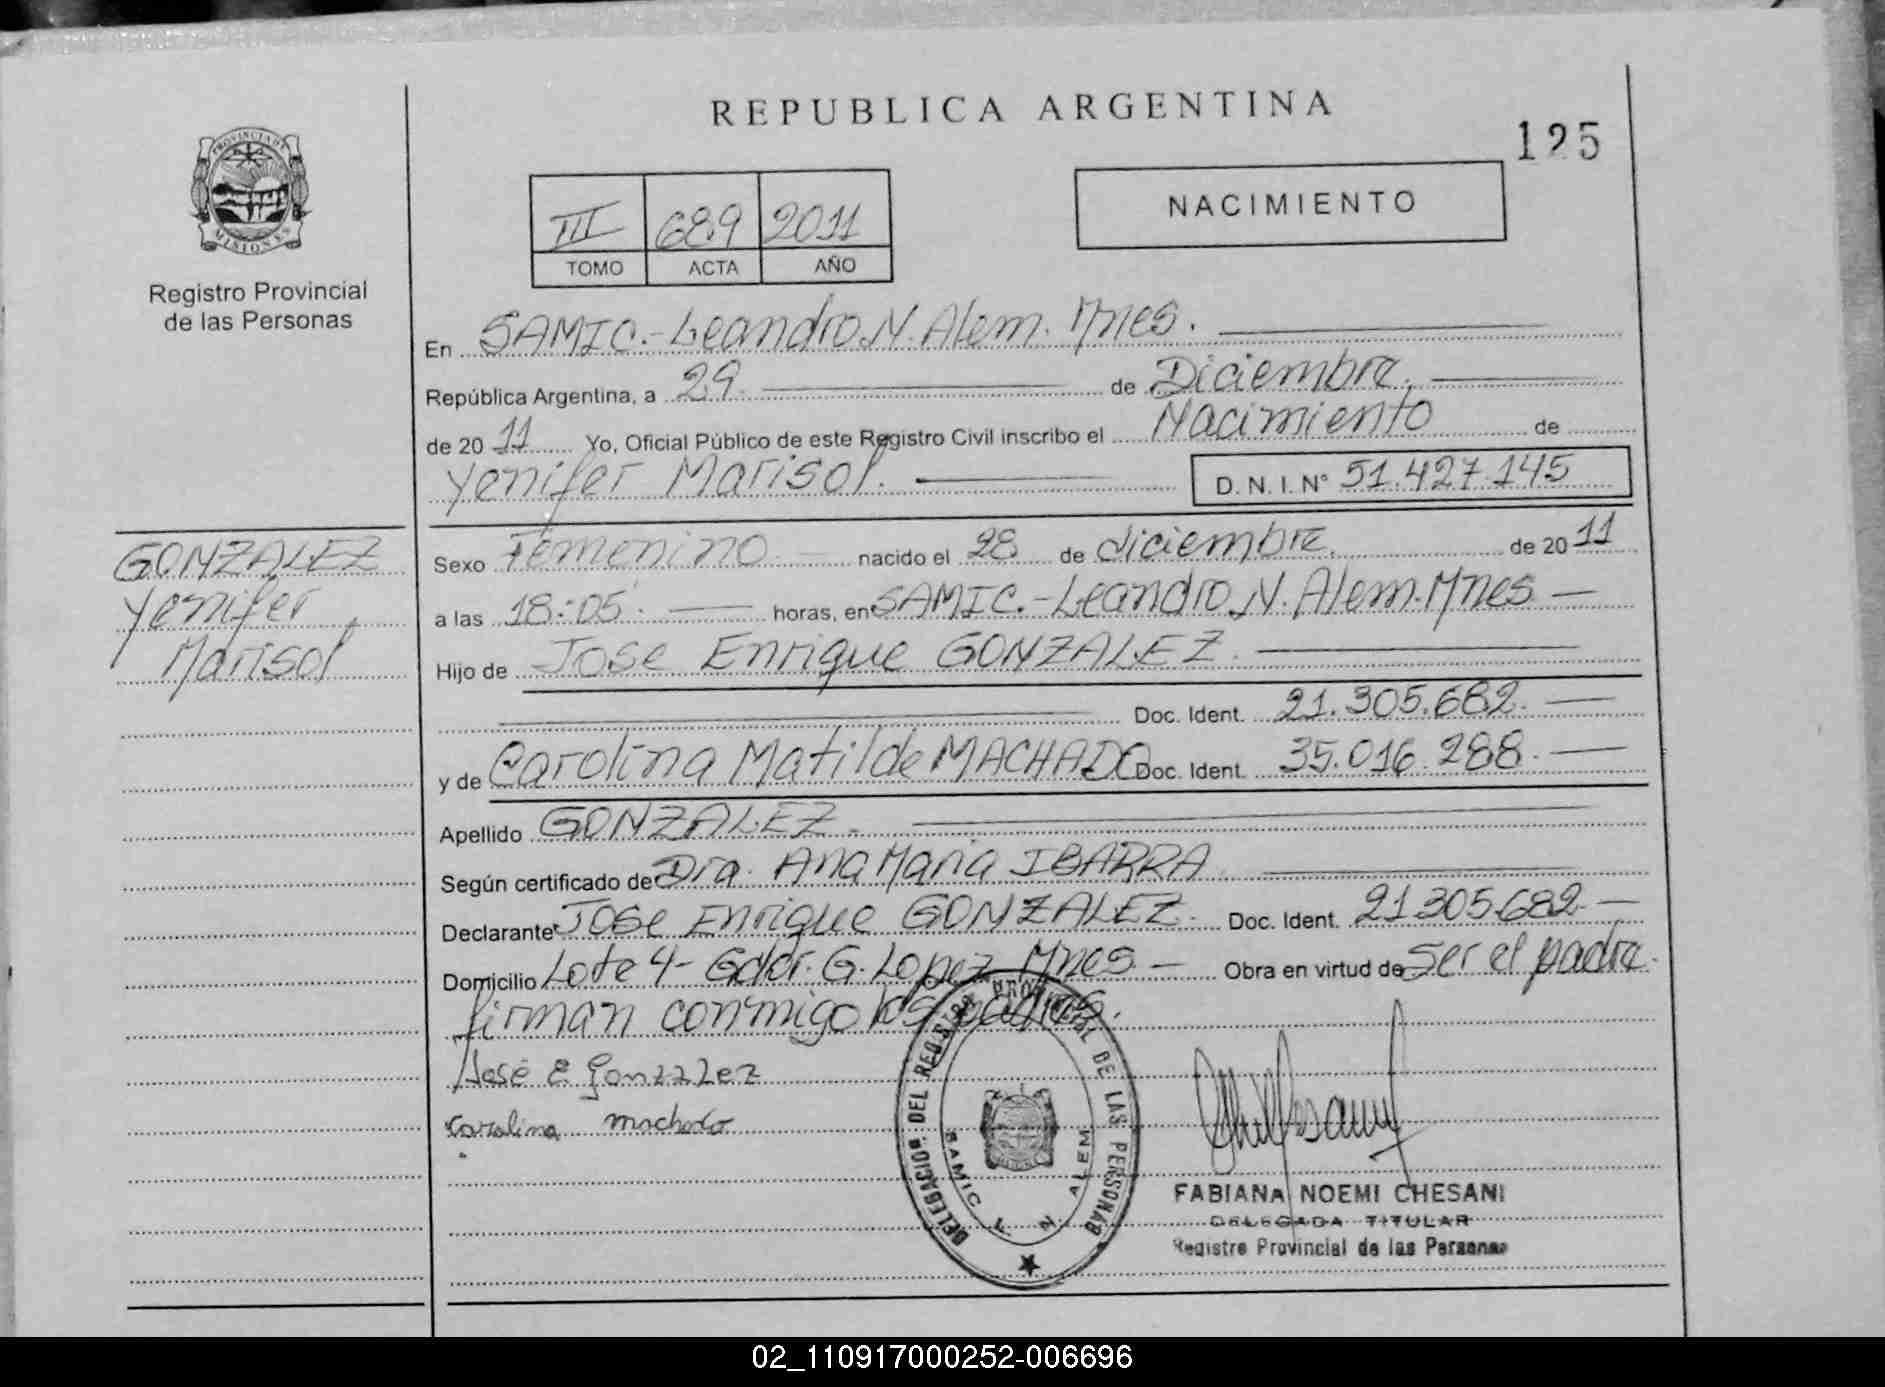 REPUBLICA ARGENTINA
125
PROVINCIA DE MISIONES
Registro Provincial
de las Personas
III 689 2011
TOMO ACTA AÑO
NACIMIENTO
En SAMIC.-Leandro.N.Alem.Mnes.
República Argentina, a 29. de Diciembre.
de 2011 Yo, Oficial Público de este Registro Civil inscribo el Nacimiento de
Yenifer Marisol. D. N. I. N° 51.427.145
GONZALEZ
Yenifer
Marisol
Sexo Femenino nacido el 28 de diciembre. de 2011
a las 18:05. horas, en SAMIC.-Leandro.N.Alem.Mnes
Hijo de Jose Enrique GONZALEZ.
Doc. Ident. 21.305.682.
y de Carolina Matilde MACHADO Doc. Ident. 35.016.288.
Apellido GONZALEZ.
Según certificado de Dra. Ana Maria IBARRA
Declarante Jose Enrique GONZALEZ. Doc. Ident. 21.305.682
Domicilio Lote 4- Gdor.G.Lopez Mnes Obra en virtud de ser el padre.
firman conmigo los padres.
José E Gonzalez
Carolina machado
DELEGACION DEL REGISTRO PROVINCIAL DE LAS PERSONAS
SAMIC L N ALEM
FABIANA NOEMI CHESANI
DELEGADA TITULAR
Registro Provincial de las Personas
02_110917000252-006696